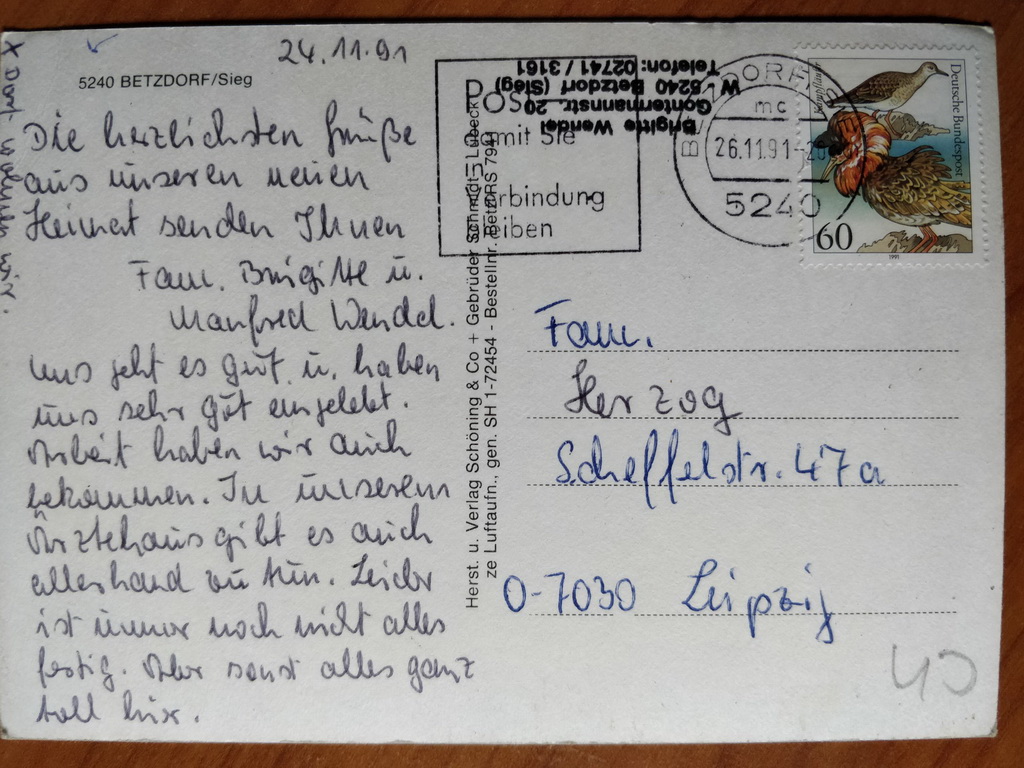 24.11.91
5240 BETZDORF/Sieg
Die herzlichsten Grüße
aus unseren neuen
Heimat senden Ihnen
Fam. Brigitte u.
Manfred Wendel.
Uns geht es gut u. haben
uns sehr gut eingelebt.
Arbeit haben wir auch
bekommen. In unserem
Ärztehaus gibt es auch
allerhand zu tun. Leider
ist immer noch nicht alles
fertig. Aber sonst alles ganz
toll hier.
X Dort wohnen wir.
Herst. u. Verlag Schöning & Co + Gebrüder Schmidt, Lübeck
ze Luftaufn., gen. SH 1-72454 - Bestellnr. BetzDRS 7991
Brigitte Wendel
Gontermannstr. 20
W 5240 Betzdorf (Sieg)
Telefon: 02741 / 3161
Post
damit Sie
Verbindung
bleiben
mc
26.11.91-20
5240
Deutsche Bundespost
Kampfläufer
60
1991
Fam.
Herzog
Scheffelstr. 47a
O-7030 Leipzig